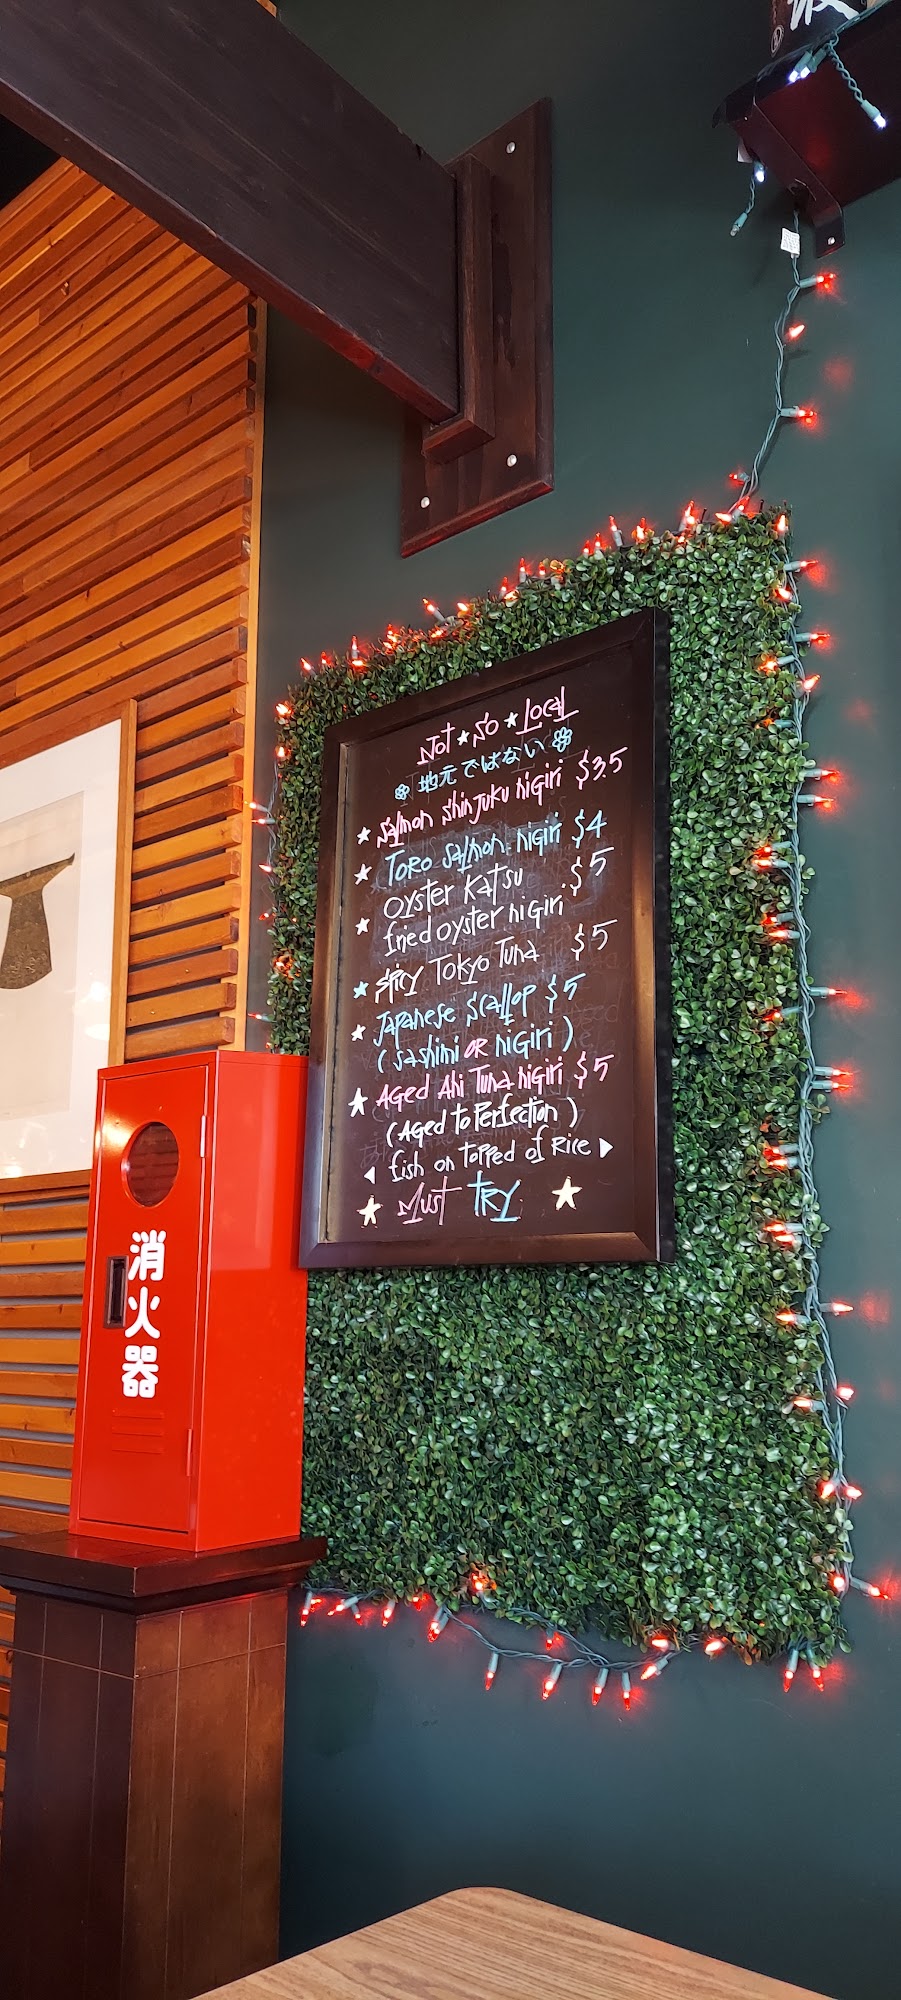 Not ★ So ★ Local
地元ではない
★ Salmon Shinjuku Nigiri $3.5
★ Toro Salmon Nigiri $4
Oyster Katsu $5
★ fried oyster Nigiri
★ Spicy Tokyo Tuna $5
★ Japanese Scallop $5
(Sashimi OR NiGiri)
★ Aged Ahi Tuna Nigiri $5
(Aged to Perfection)
◀ fish on Topped of Rice ▶
★ Must TRY ★
消火器